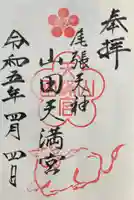 奉拝
尾張天神
山田天満宮
令和五年四月四日